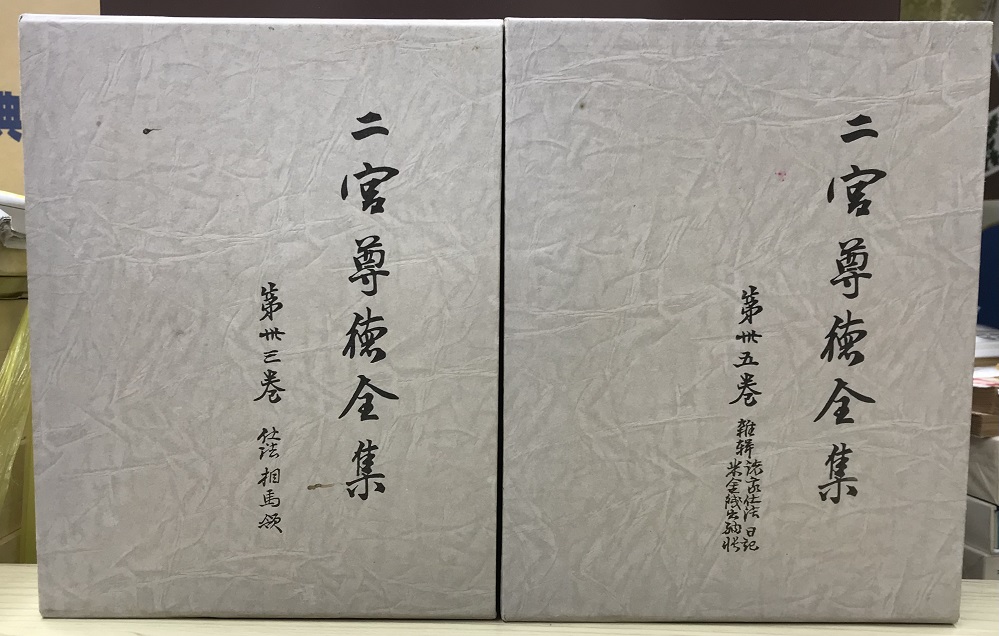 二宮尊徳全集
第卅三巻 仕法 相馬領
二宮尊徳全集
第卅五巻 雜輯 諸家仕法 日記
米金銭出納帳
典